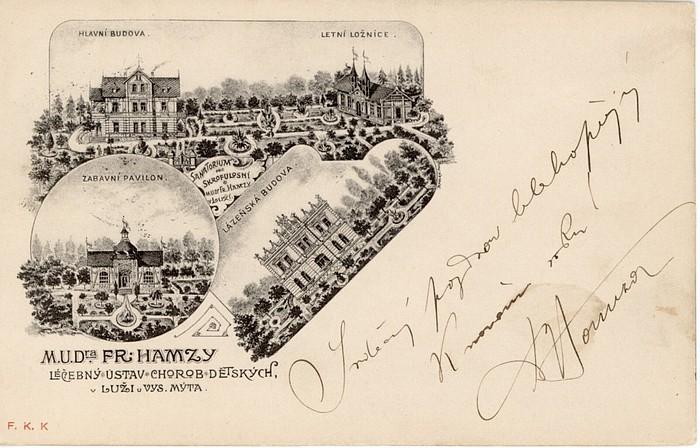 HLAVNÍ BUDOVA.
LETNÍ LOŽNICE.
SANATORIUM
PRO
SKROFULOSNÍ
MUDR. FR. HAMZY
V LUŽI
ZÁBAVNÍ PAVILON.
LÁZEŇSKÁ BUDOVA
M.U.DRA FR. HAMZY
LÉČEBNÝ ÚSTAV CHOROB DĚTSKÝCH,
V LUŽI U VYS. MÝTA.
Srdečný pozdrav
K novému roku
F. K. K